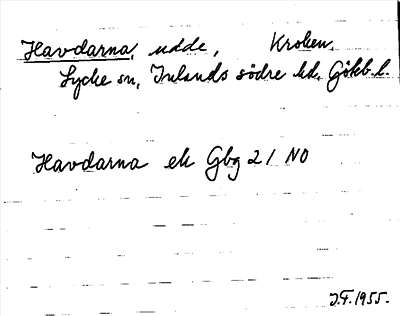 Havdarna, udde, Kroken,
Lycke sn, Inlands södre hd, Gökb. l.
Havdarna ek Gbg 21 NO
J.F. 1955.